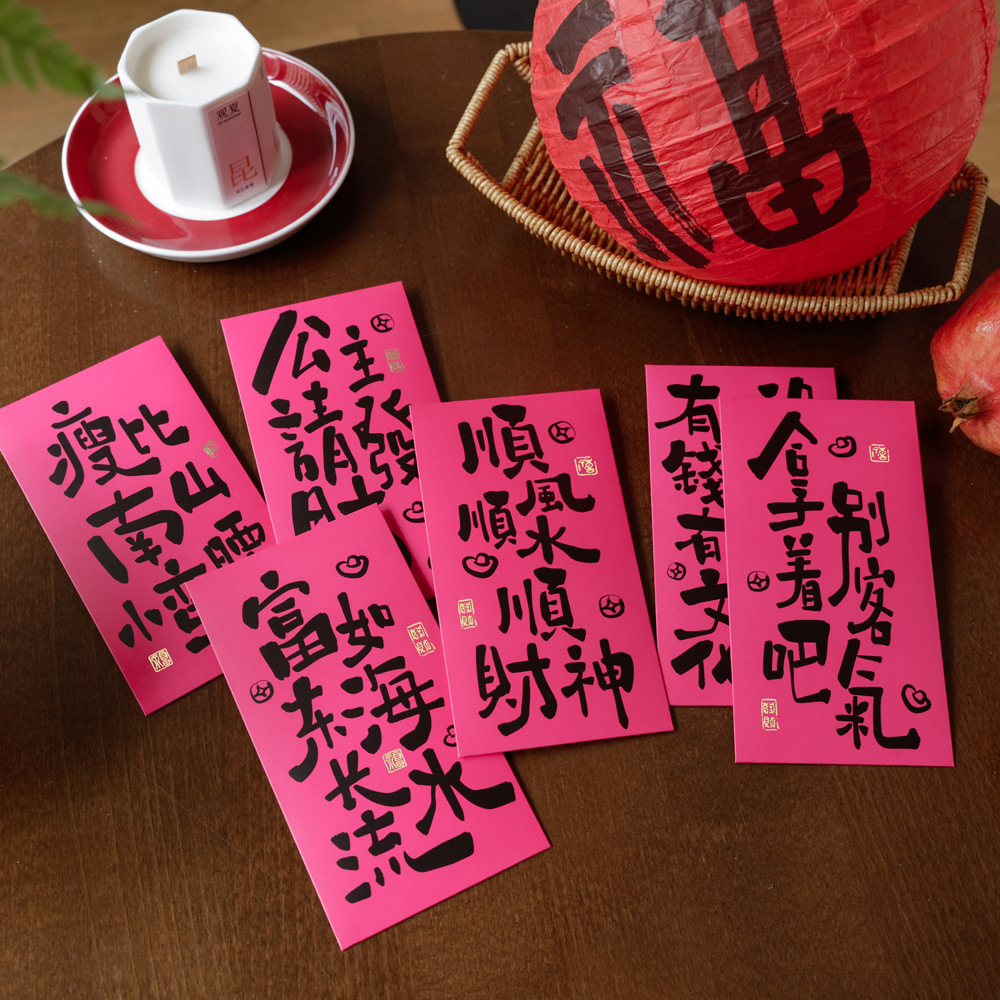 福
观夏
昆
瘦比
南山
小
公主
請發
富如
东海
长流水
順風
順水
順
財神
有錢有文化
拿着吧
别客氣